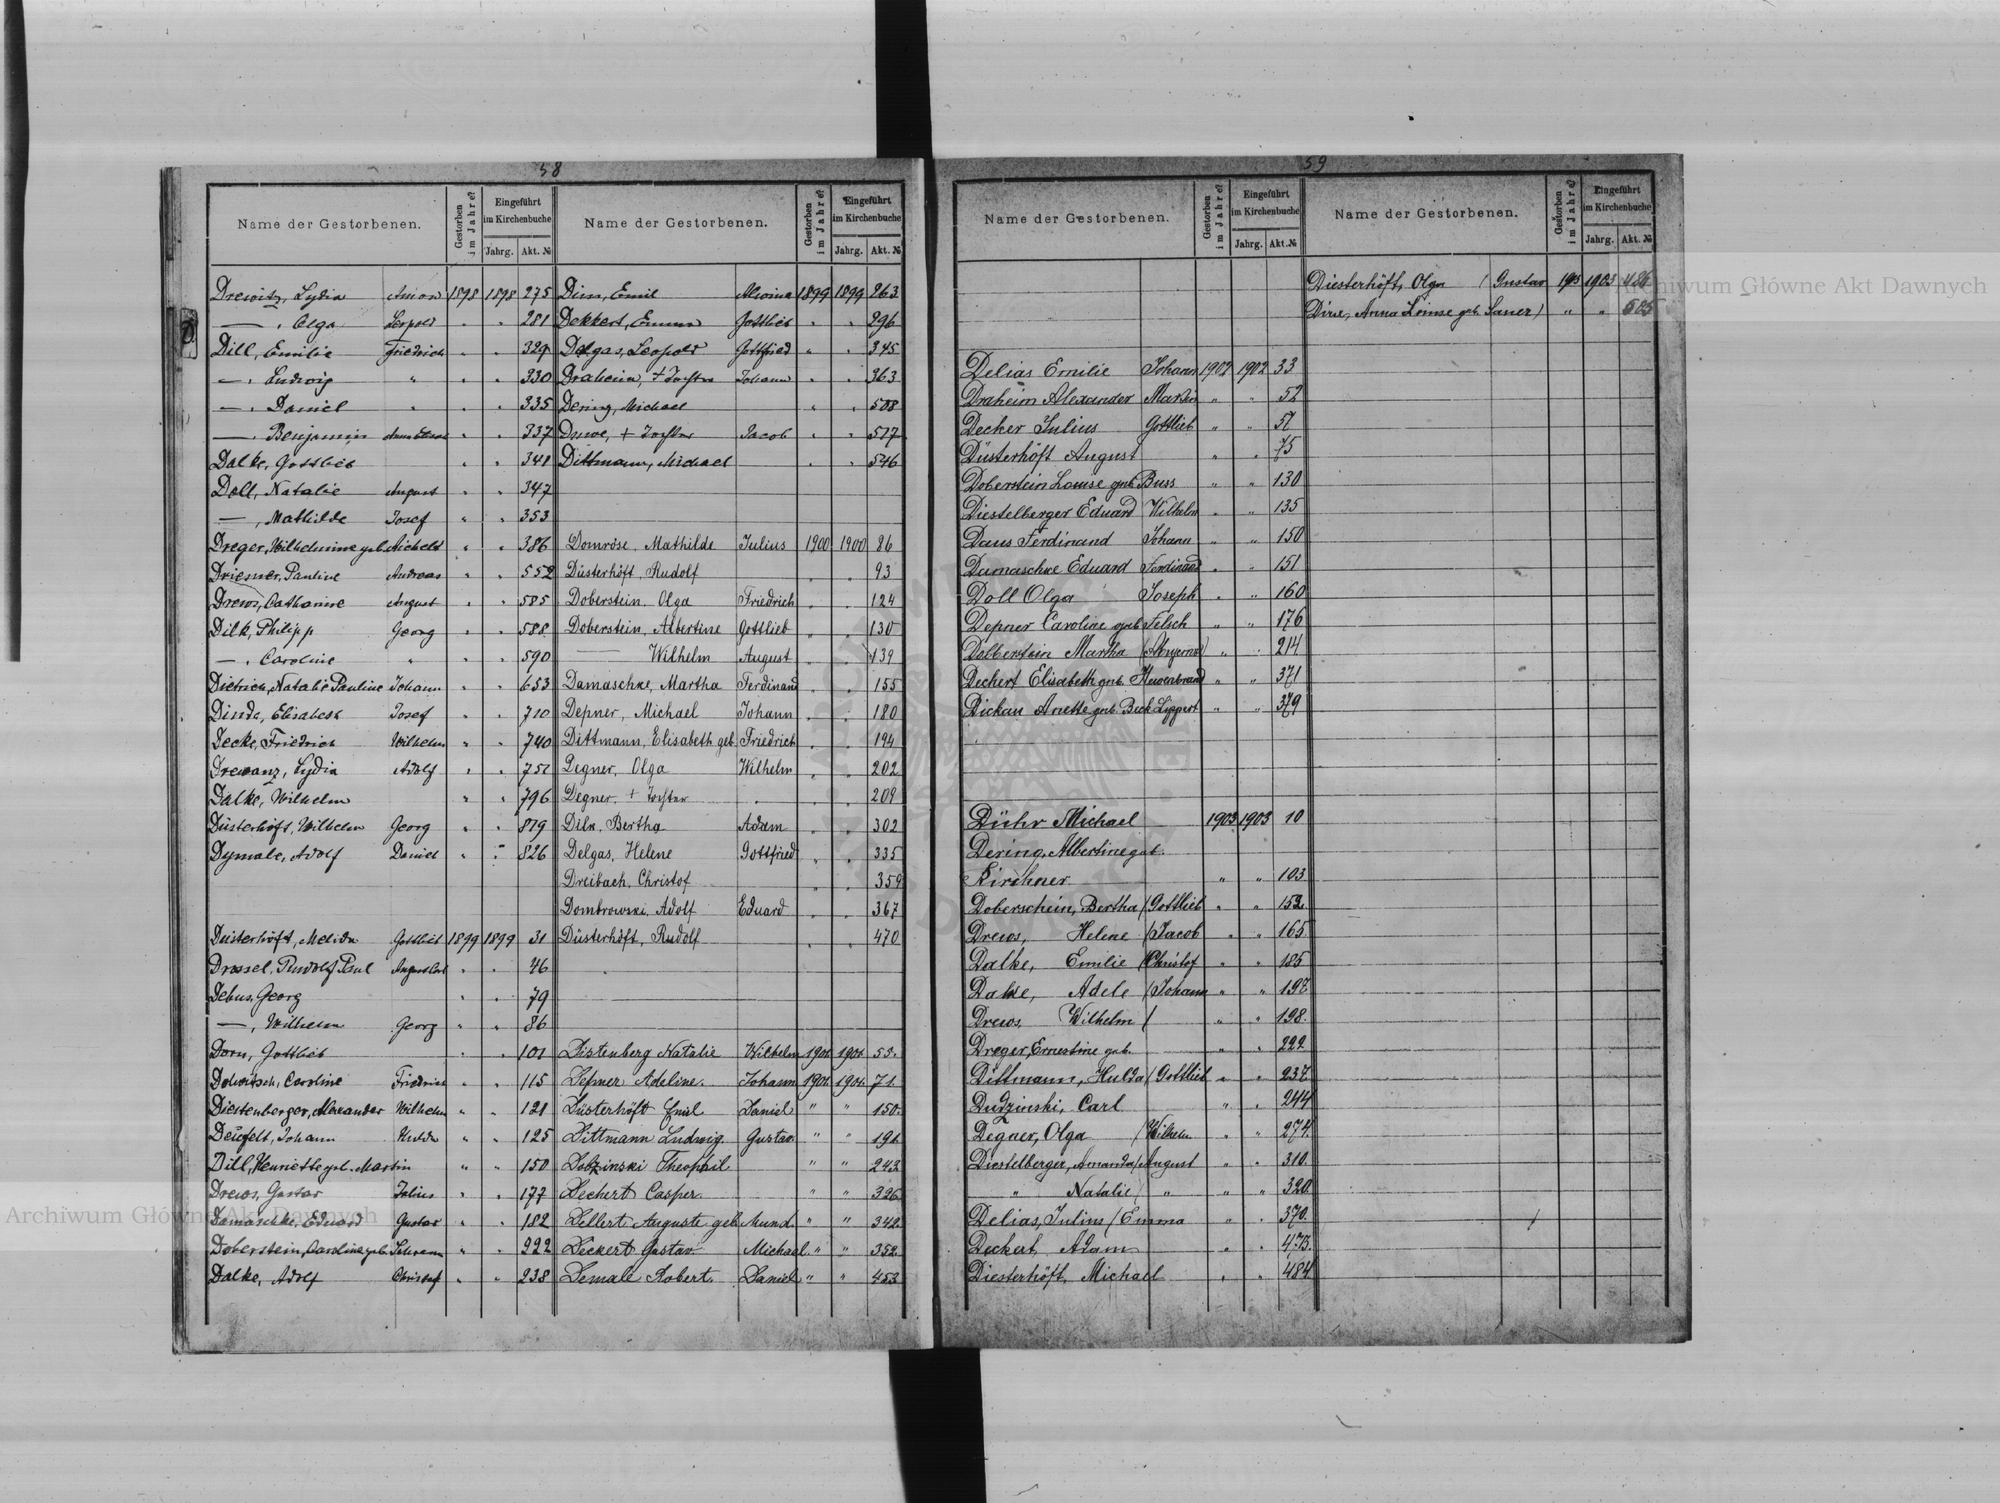 58
Name der Gestorbenen.
Gestorben im Jahre?
Eingeführt im Kirchenbuche
Jahrg.
Akt. №
Name der Gestorbenen.
Gestorben im Jahre?
Eingeführt im Kirchenbuche
Jahrg.
Akt. №
Drewitz, Lydia 1898 1898 275
— , Olga Leopold " " 281
Dill, Emilie Friedrich " " 329
— , Ludwig " " " 330
— , Daniel " " " 335
— , Benjamin " " 337
Dalke, Gottlieb " " 341
Doll, Natalie August " " 347
— , Mathilde Josef " " 353
Dreger, Wilhelmine geb. " " 386
Driesner, Pauline Andreas " " 552
Drews, Catharine August " " 585
Dilk, Philipp Georg " " 588
— , Caroline " " " 590
Dietrich, Natalie Pauline Johann " " 653
Dinda, Elisabeth Josef " " 710
Decke, Friedrich Wilhelm " " 740
Drewanz, Lydia Adolf " " 751
Dalke, Wilhelm " " 796
Düsterhöft, Wilhelm Georg " " 819
Dymale, Adolf Daniel " " 826
Düsterhöft, Gottlieb 1899 1899 31
Rudolf Paul " " 46
Debus, Georg " " 79
— , Wilhelm Georg " " 86
Dorn, Gottlieb " " 101
Caroline Friedrich " " 115
Diestenberger, Alexander Wilhelm " " 121
Johann " " 125
Dill, Henriette geb. Martin " " 150
Drews, Gustav Julius " " 177
Damaschke, Eduard Gustav " " 182
Doberstein, Caroline geb. " " 222
Dalke, Adolf Christof " " 238
Emil 1899 1899 263
Dekkert, Emma Gottlieb " " 296
Delgas, Leopold Gottfried " " 345
Draheim, + Tochter Johann " " 363
Dering, Michael " " 508
+ Tochter Jacob " " 517
Dittmann, Michael " " 546
Domröse, Mathilde Julius 1900 1900 86
Düsterhöft, Rudolf " " 93
Doberstein, Olga Friedrich " " 124
Doberstein, Albertine Gottlieb " " 130
— Wilhelm August " " 139
Damaschke, Martha Ferdinand " " 155
Depner, Michael Johann " " 180
Dittmann, Elisabeth geb. Friedrich " " 194
Degner, Olga Wilhelm " " 202
Degner, + Tochter " " " 209
Dilk, Bertha Adam " " 302
Delgas, Helene Gottfried " " 335
Dreibach, Christof " " 359
Dombrowski, Adolf Eduard " " 367
Düsterhöft, Rudolf " " 470
Distenberg Natalie Wilhelm 1901 1901 55.
Depner Adeline. Johann 1901. 1901. 71.
Düsterhöft Emil Daniel " " 150.
Dittmann Ludwig. Gustav. " " 191.
Dobzinski Theophil " " 243
Dechert Casper. " " 326
Dellert Auguste geb. Mund. " " 342
Deckert Gustav Michael " " 352
Demale Robert. Daniel " " 453
59
Name der Gestorbenen.
Gestorben im Jahre?
Eingeführt im Kirchenbuche
Jahrg.
Akt. №
Name der Gestorbenen.
Gestorben im Jahre?
Eingeführt im Kirchenbuche
Jahrg.
Akt. №
Delias Emilie Johann 1902 1902 33
Draheim Alexander Martin " " 52
Decher Julius Gottlieb " " 57
Düsterhöft August " " 75
Doberstein Louise geb. Buss " " 130
Diestelberger Eduard Wilhelm " " 135
Daus Ferdinand Johann " " 150
Damaschke Eduard Ferdinand " " 151
Doll Olga Joseph " " 160
Depner Caroline geb. Felsch " " 176
Dolberstein Martha " " 214
Dechert Elisabeth geb. " " 371
Dickau Anette geb. Beck Lippert " " 379
Dühr Michael 1903 1903 10
Dering, Albertine geb.
Kirchner " " 103
Doberschein, Bertha / Gottlieb " " 152.
Drews, Helene / Jacob " " 165
Dalke, Emilie / Christof " " 185
Dalke, Adele / Johann " " 197
Drews, Wilhelm / " " 198.
Dreger, Ernestine geb. " " 222
Dittmann, Hulda / Gottlieb " " 237
Dudzinski, Carl " " 244
Degner, Olga / Wilhelm " " 274.
Diestelberger, Amanda / August " " 310.
" Natalie / " " " 320.
Delias, Julius / Emma " " 370.
Deckert, Adam " " 473.
Diesterhöft, Michael " " 484
Diesterhöft, Olga / Gustav 1903 1903 486
Anna Louise geb. Sauer / " "
Archiwum Główne Akt Dawnych
Archiwum Główne Akt Dawnych